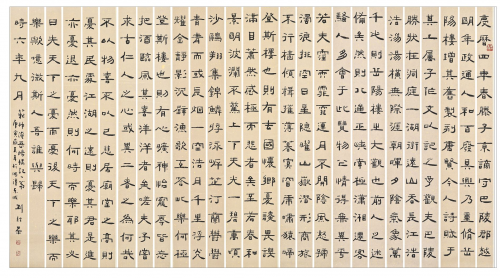 慶歷四年春滕子京謫守巴陵郡越
明年政通人和百廢具興乃重修岳
陽樓增其舊制刻唐賢今人詩賦于
其上屬予作文以記之予觀夫巴陵
勝狀在洞庭一湖銜遠山吞長江浩
浩湯湯橫無際涯朝暉夕陰氣象萬
千此則岳陽樓之大觀也前人之述
備矣然則北通巫峽南極瀟湘遷客
騷人多會于此覽物之情得無異乎
若夫霪雨霏霏連月不開陰風怒號
濁浪排空日星隱曜山岳潛形商旅
不行檣傾楫摧薄暮冥冥虎嘯猿啼
登斯樓也則有去國懷鄉憂讒畏譏
滿目蕭然感極而悲者矣至若春和
景明波瀾不驚上下天光一碧萬頃
沙鷗翔集錦鱗游泳岸芷汀蘭郁郁
青青而或長烟一空皓月千里浮光
耀金靜影沉璧漁歌互答此樂何極
登斯樓也則有心曠神怡寵辱皆忘
把酒臨風其喜洋洋者矣嗟夫予嘗
求古仁人之心或異二者之為何哉
不以物喜不以己悲居廟堂之高則
憂其民處江湖之遠則憂其君是進
亦憂退亦憂然則何時而樂耶其必
曰先天下之憂而憂后天下之樂而
樂歟噫微斯人吾誰與歸
時六年九月